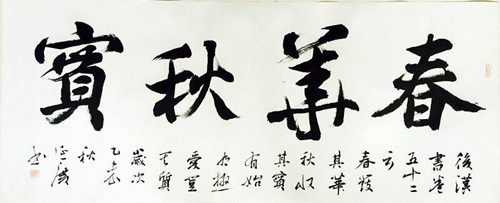 春華秋實
後漢
書卷
五十二
云
春發
其華
秋收
其實
有始
有極
爰登
其質
歲次
乙未
秋
書